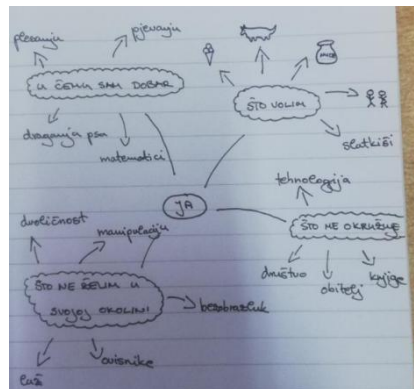 plesanju
pjevanju
U ČEMU SAM DOBAR
draganja psa
matematici
ŠTO VOLIM
slatkiši
JA
tehnologija
ŠTO ME OKRUŽUJE
društvo
obitelj
knjige
dvoličnost
manipulaciju
ŠTO NE ŽELIM U
SVOJOJ OKOLINI
bezobrazluk
ovisnike
laži